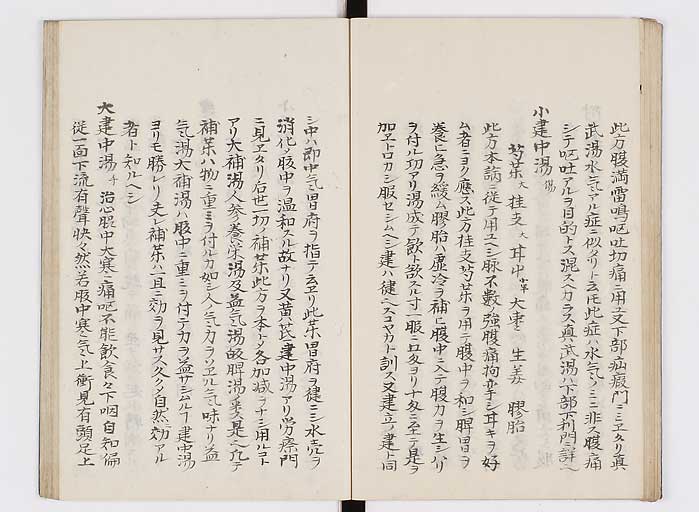 此方腹満雷鳴嘔吐切痛ニ用エ又下部疝瘕門ニミヱタリ真
武湯水気アル症ニ似タリト云氏此症ハ水気ノミニ非ス腹痛
シテ嘔吐アルヲ目的トス混スヘカラス真武湯ハ下部下利門ニ詳ヘ
小建中湯
芍薬 大 桂支 大 甘中 大棗 生姜 膠飴
此方本論ニ従テ用エヘシ脉不數強腹痛拘挛シ甘キヲ好
ム者ニヨク應ス此方桂支芍薬ヲ用テ腹中ヲ和シ脾胃ヲ
養ニ急ヲ緩ム膠飴ハ虚冷ヲ補ニ腹中ニ入テ腹力ヲ生シハリ
ヲ付ル功アリ湯成テ飲ト欲スル寸一服ニ五匁ヨリ十匁ニ至テ是ヲ
加エトロカシ服セシムヘシ建ハ健ヘスコヤカト訓ス又建立ノ建ト同
シ中ハ即中気ニ胃府ヲ指テ云ヱリ此薬胃府ヲ健ニシ水売ヲ
消化ノ腹中ヲ温和スル故ナリ又黄芪建中湯アリ労療門
ニ見ヱタリ后世一切ノ補薬此方ヲ本トノ各加减ヲナシ用ルコト
アリ大補湯人参養栄湯及益気湯帰脾湯ノ類是ヘ凡テ
補薬ハ物ニ重ミヲ付ル力如シ人ノ気力ヲソヱル気味ナリ益
気湯大補湯ハ腹中ニ重ミヲ付テカラ益サシムルノ建中湯
ヨリモ勝レリ夫レ補薬ハ一旦ニ効ヲ見サス久クノ自然ニ効アル
者ト知ルヘシ
大建中湯 治心腹中大寒痛嘔不能飲食々下咽自知偏
從一面下流有聲快々然若腹中寒気上衝見有頭足上